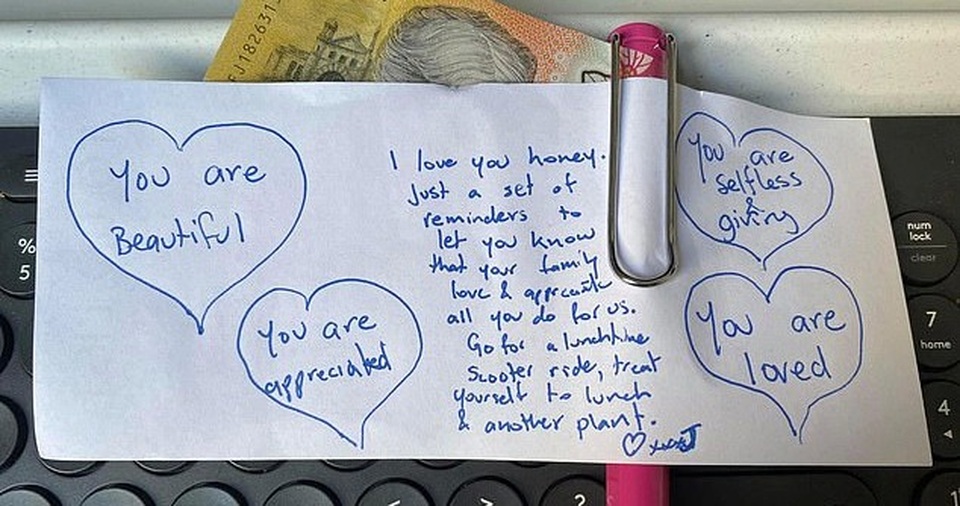 FJ182631
You are
Beautiful
You are
appreciated
I love you honey.
Just a set of
reminders to
let you know
that your family
love & appreciate
all you do for us.
Go for a lunchtime
scooter ride, treat
yourself to lunch
& another plant.
♡ xxxJ
You are
selfless
&
giving
You are
loved
%
5
num
lock
clear
7
home
4
<
>
?
1